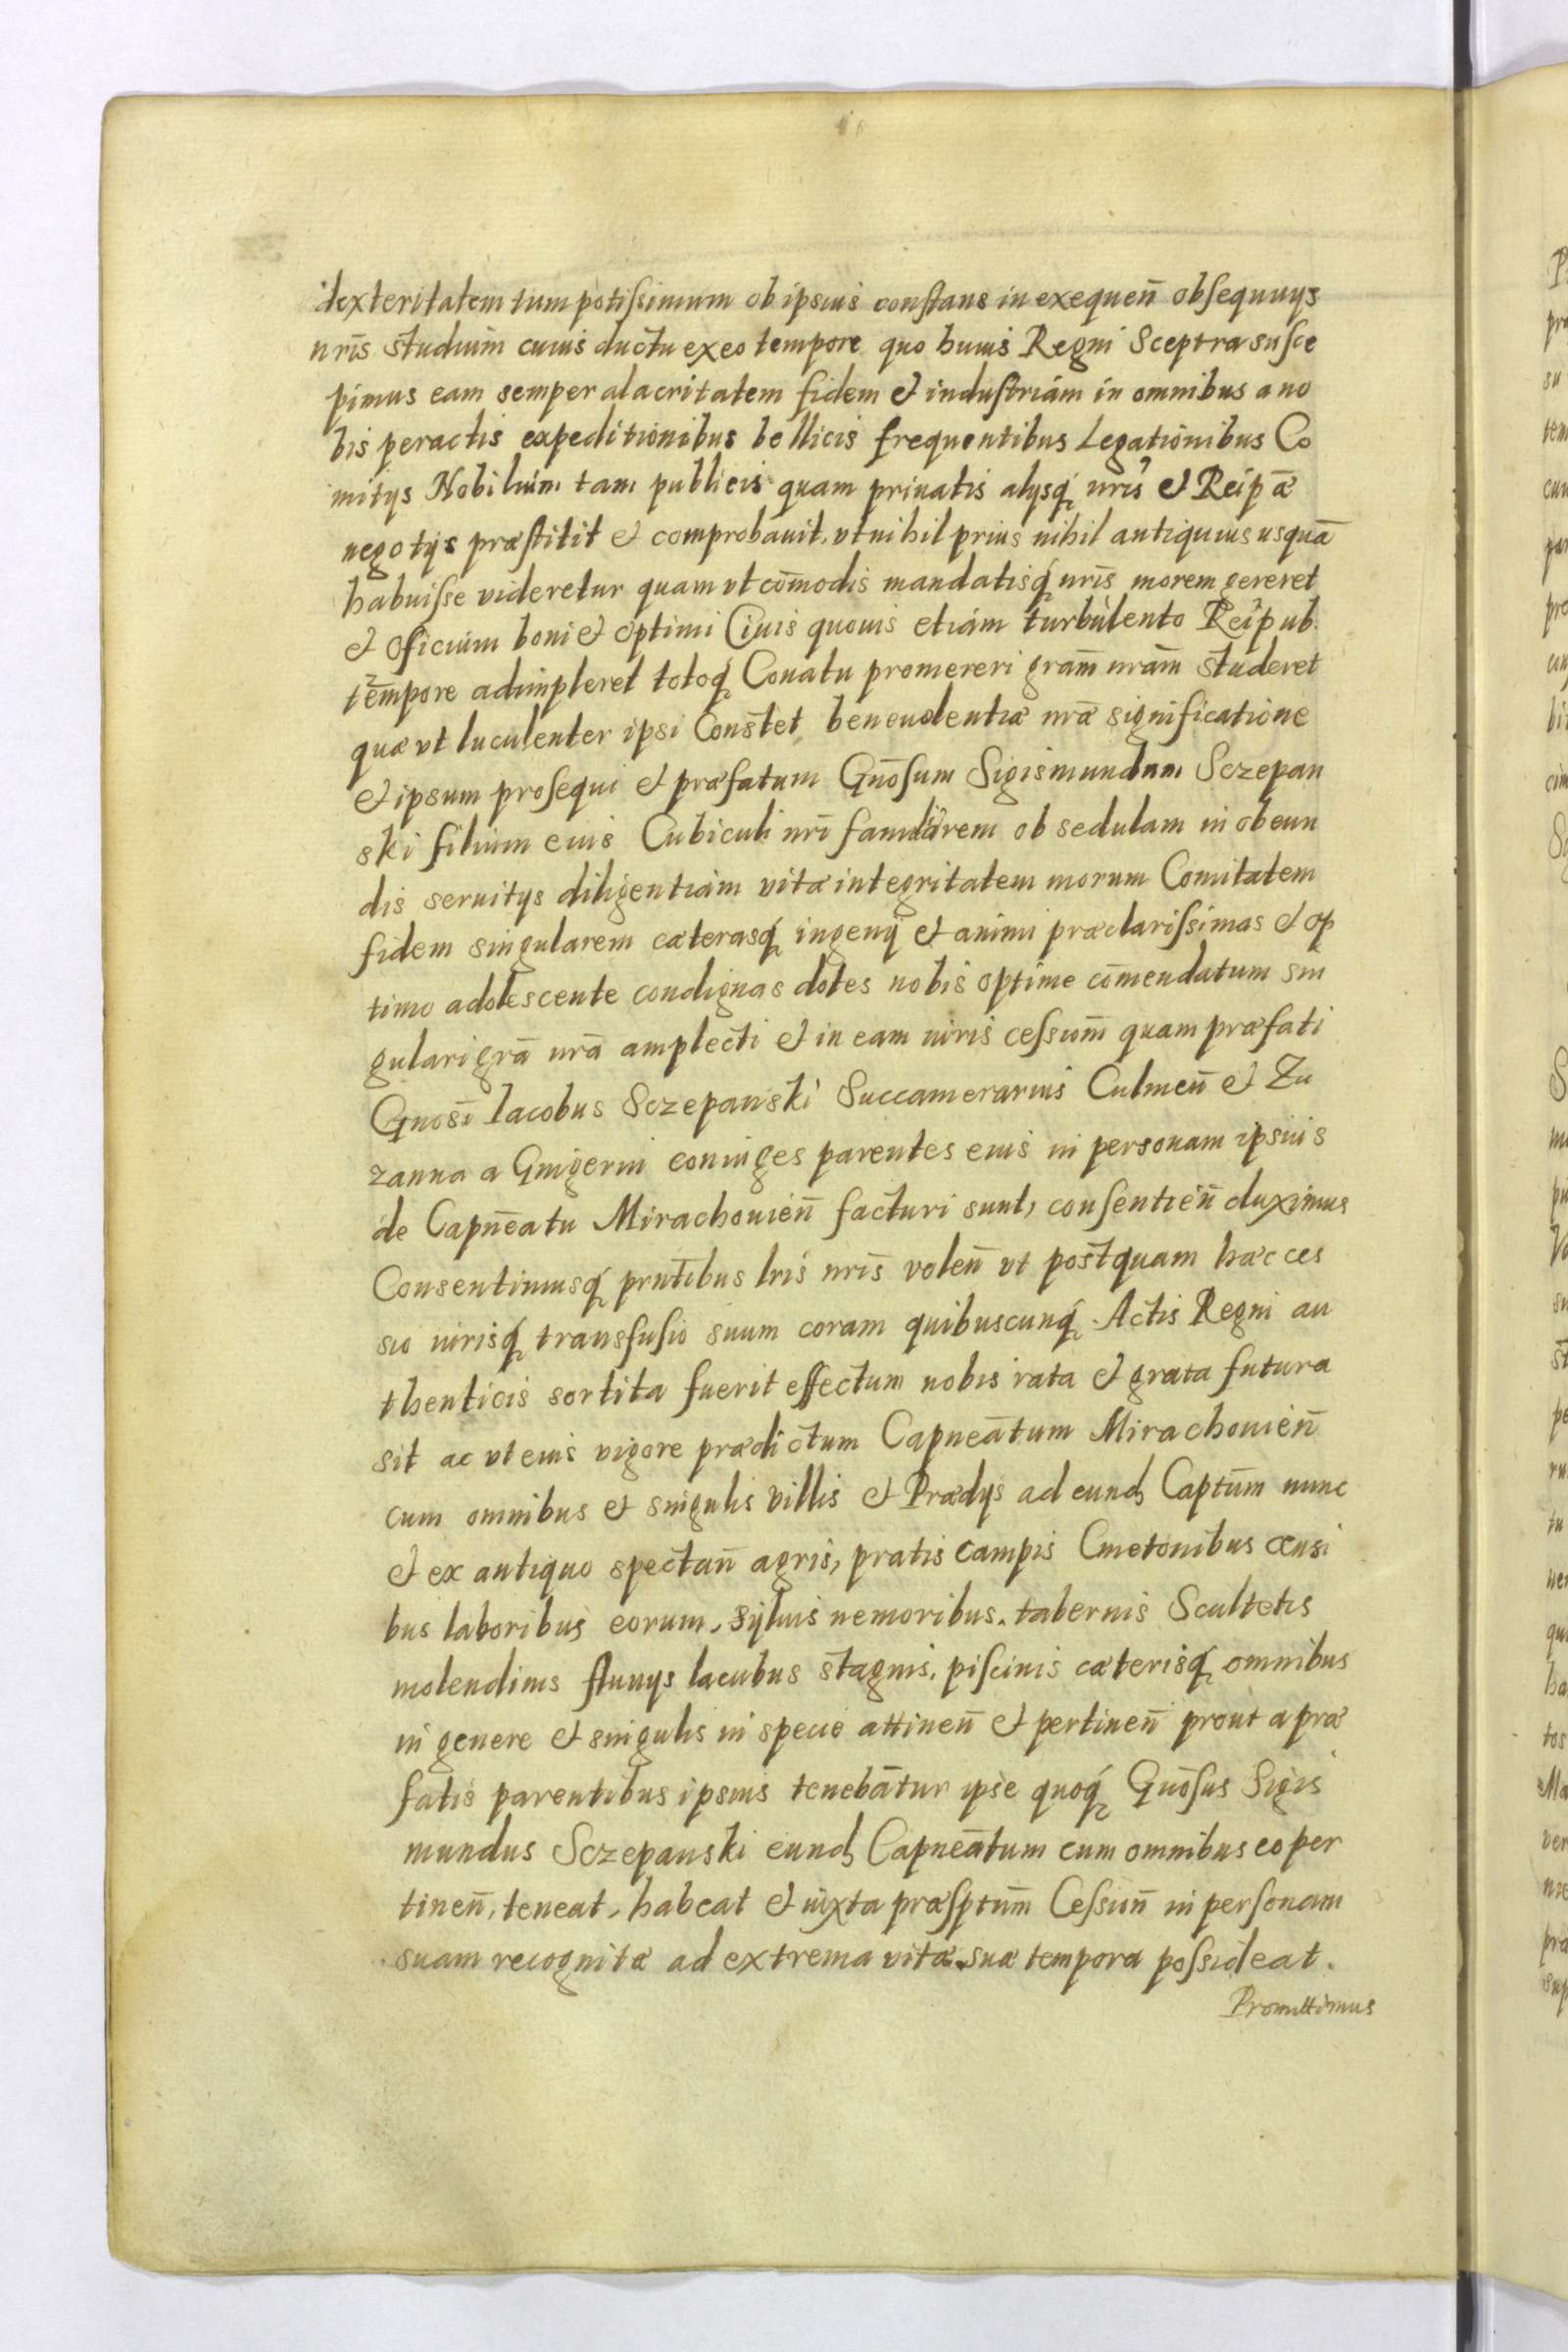 dexteritatem tum potissimum ob ipsius constans in exequen̄ obsequuys
nr̄is studium cuius ductu ex eo tempore quo huius Regni Sceptra susce
pimus eam semper alacritatem fidem et industriam in omnibus a no
bis peractis expeditionibus bellicis frequentibus Legationibus Co
mitys Nobilium tam publicis quam priuatis alysq́ nr̄is et Reip̄æ
negotys præstitit et comprobauit, vt nihil prius nihil antiquius usquā
habuisse videretur quam vt com̄odis mandatisq́ nr̄is morem gereret
et oficium boni et optimi Ciuis quouis etiam turbulento Reip̄ub.
tempore adimpleret totoq́ Conatu promereri gram̄ nram̄ studeret
quæ vt luculenter ipsi Constet, beneuolentiæ nr̄æ significatione
et ipsum prosequi et præfatum Gnōsum Sigismundum Sczepan
ski filium eius Cubiculi nr̄i familiarem ob sedulam in obeun
dis seruitys diligentiam vitæ integritatem morum Comitatem
fidem singularem cæterasq́ ingenij et animi præclarissimas et op
timo adolescente condignas dotes nobis optime com̄endatum sin
gulari grā nr̄a amplecti et in eam iuris cessiom̄ quam præfati
Gnosī Iacobus Sczepanski Succamerarius Culmen̄ et Zu
zanna a Gnigerin coniuges parentes eius in personam ipsius
de Capn̄eatu Mirachouien̄ facturi sunt, consentien̄ duximus
Consentimusq́ prntībus lris nr̄is volen̄ vt postquam hæc ces
sio iurisq́ transfusio suum coram quibuscunq́ Actis Regni au
thenticis sortita fuerit effectum nobis rata et grata futura
sit ac vt eius vigore prædictum Capneātum Mirachouien̄
cum omnibus et singulis villis et Prædys ad eund̄ Captūm nunc
et ex antiquo spectan̄ agris, pratis campis Cmetonibus censi
bus laboribus eorum, syluis nemoribus, tabernis Scultetis
molendinis fluuys lacubus stagnis, piscinis cæterisq́ omnibus
in genere et singulis in specie attinen̄ et pertinen̄ prout a præ
fatis parentibus ipsius tenebātur ipse quoq́ Gnōsus Sigis
mundus Sczepanski eund̄ Capneātum cum omnibus eo per
tinen̄, teneat, habeat et iuxta præsptūm Cession̄ in personam
suam recognitæ ad extrema vitæ suæ tempora possideat.
Promittimus